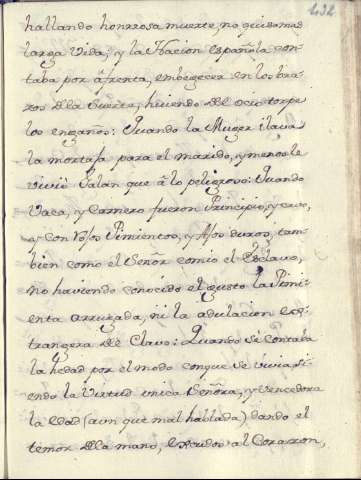 232
hallando honrrosa muerte, no quiso mas
larga Vida, y la Nacion española con-
taba por afrenta, embegecer en los bra-
zos dela Suerte, huiendo del ocio torpe
los engaños: Quando la Muger ilava
la mortaja para el marido, y menos le
vivió Galan que á lo peligroso: Quando
Vaca, y Carnero fueron Principio, y cavo,
y con rojos Pimientos, y Ajos duros, tam-
bien como el Señor comio el Esclavo,
no haviendo conocido el gusto la Pimi-
enta arrugada, ni la adulacion es-
trangera de Clavo: Quando se contaba
la hedad por el modo conque se vivia, si-
endo la Virtud unica Señora, y vencedora
la edad (aun que mal hablada) dando el
temor dela mano, Escudos al Corazon,